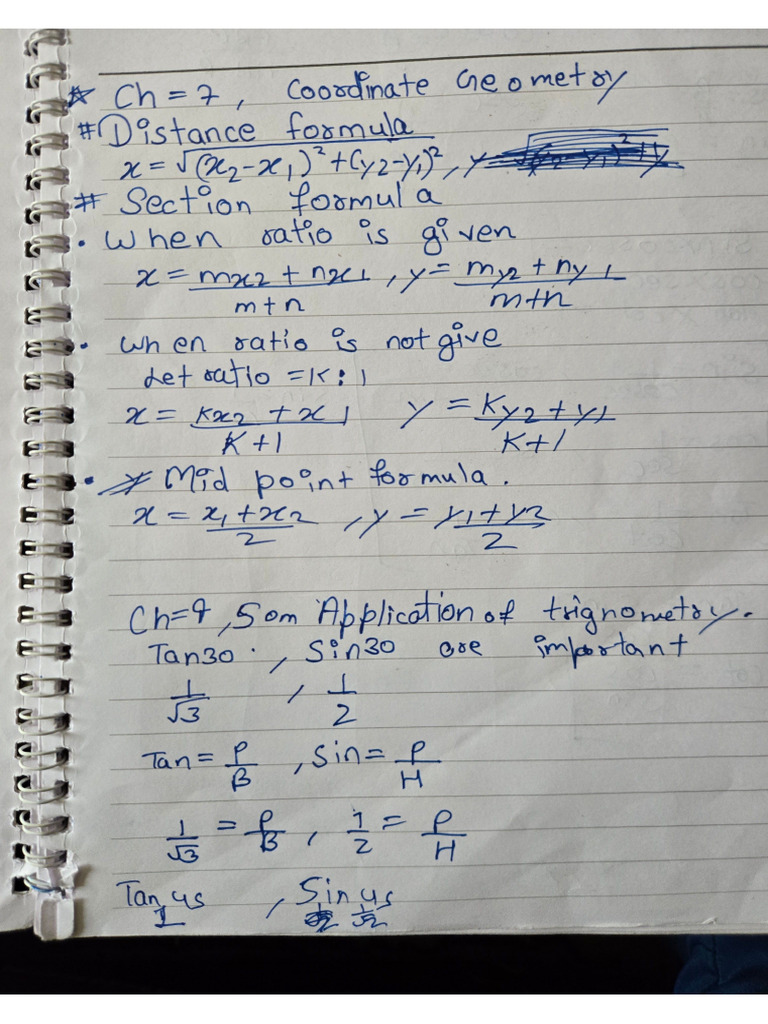 * Ch = 7, Coordinate Geometry
# Distance formula
x = √(x₂-x₁)²+(y₂-y₁)², y
# Section formula
• When ratio is given
x = mx₂ + nx₁ / m+n, y = my₂ + ny₁ / m+n
• when ratio is not give
Let ratio = K:1
x = Kx₂ + x₁ / K+1 y = Ky₂ + y₁ / K+1
• * Mid point formula.
x = x₁+x₂ / 2, y = y₁+y₂ / 2
Ch=9, Som Application of trignometry.
Tan30, Sin30 are important
1/√3, 1/2
Tan = P/B, Sin = P/H
1/√3 = P/B, 1/2 = P/H
Tan 45, Sin 45
1 1/√2